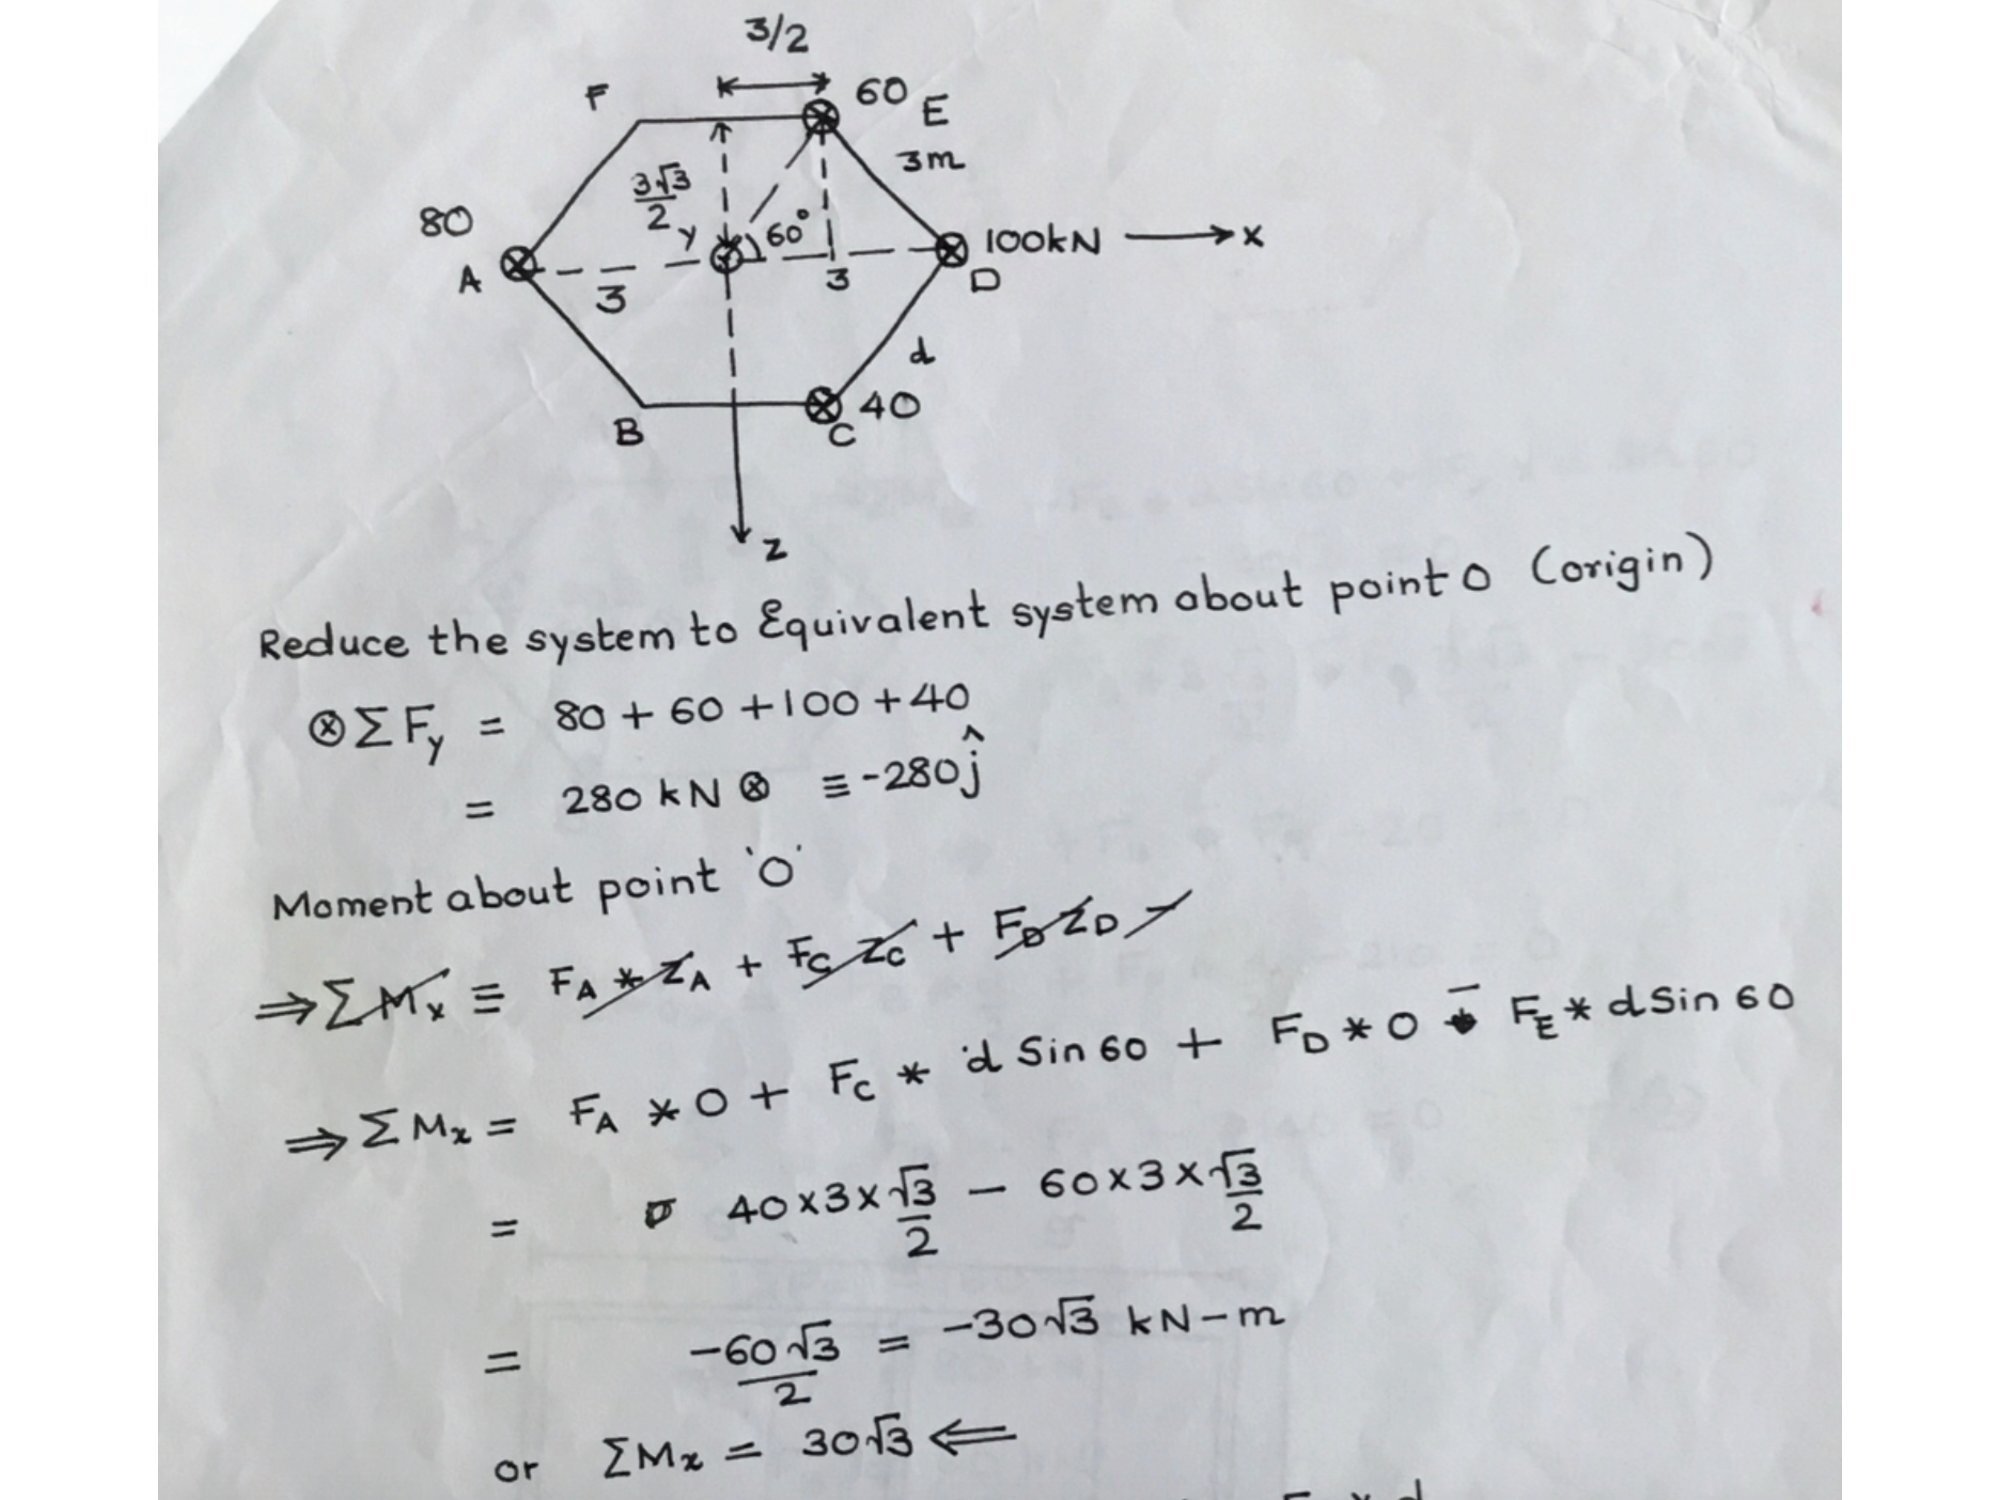 3/2
F
60 E
3m
3√3/2
80
y
60°
100kN → x
A
3
3
D
d
B
40
C
z
Reduce the system to Equivalent system about point O (origin)
⊗ΣFy = 80 + 60 + 100 + 40
= 280 kN ⊗ ≡ -280ĵ
Moment about point 'O'
⇒ΣMx ≡ FA * ZA + FC ZC + FD ZD -
⇒ΣMx = FA * 0 + FC * d Sin 60 + FD * 0 - FE * d Sin 60
= 40 x 3 x √3/2 - 60 x 3 x √3/2
= -60√3/2 = -30√3 kN-m
or ΣMx = 30√3 ⇐